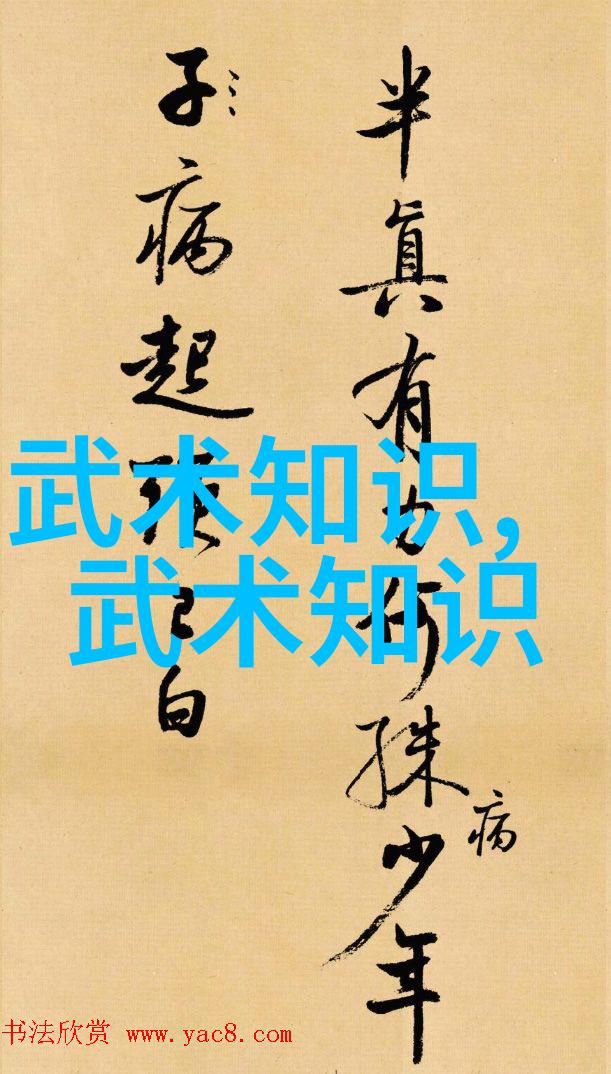 半真有力何殊少年
病
子病起須已白
武术知识，
武术知识
书法欣赏 www.yac8.com